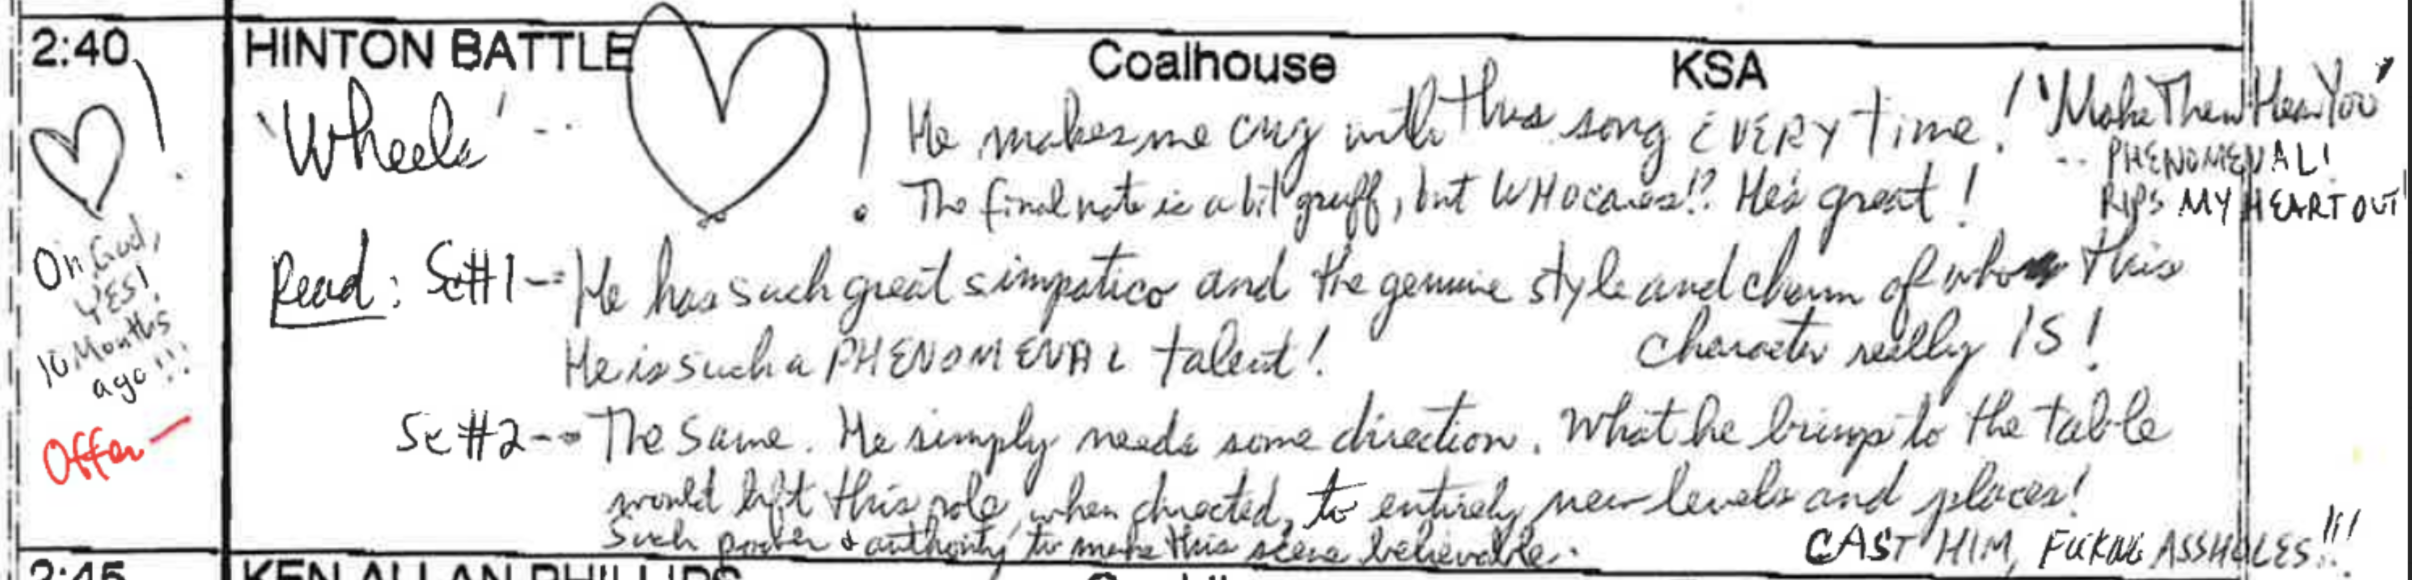 2:40
HINTON BATTLE Coalhouse KSA
!
'Wheels' -- !
He makes me cry with this song EVERY time! 'Make Them Hear You'
-- PHENOMENAL!
The final note is a bit gruff, but WHO cares!? He's great!
RIPS MY HEART OUT
Oh God,
YES!
10 Months
ago!!!
Offer
Read: Sc#1-- He has such great simpatico and the genuine style and charm of who this
character really IS!
He is such a PHENOMENAL talent!
Sc#2-- The same. He simply needs some direction. What he brings to the table
would lift this role, when directed, to entirely new levels and places!
Such power & authority to make this scene believable.
CAST HIM, FUKING ASSHOLES!!!
2:45
KEN ALLAN PHILLIPS